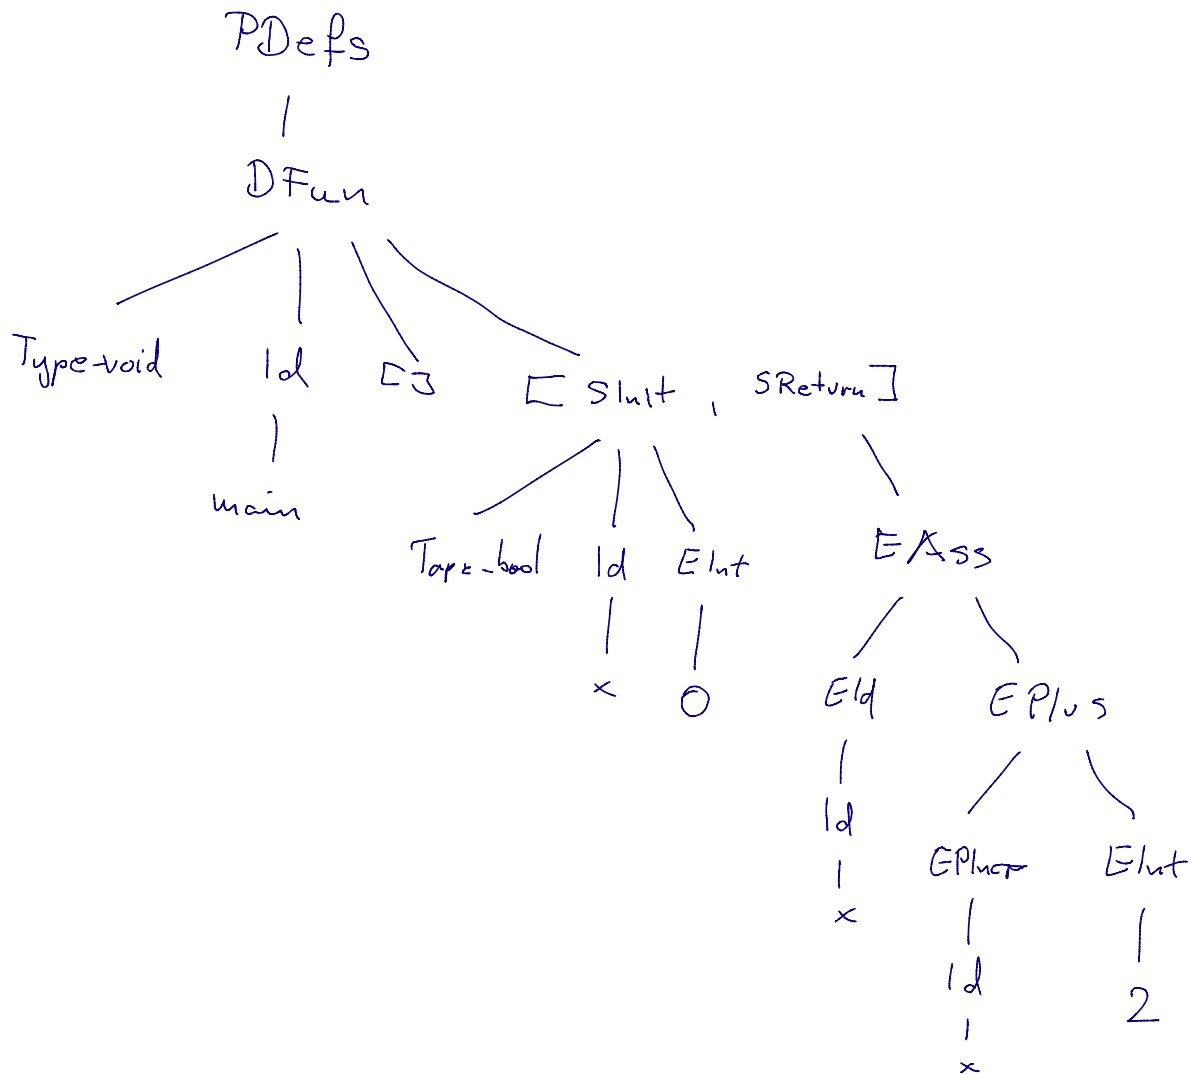 PDefs
DFun
Type_void Id [] [ SInit , SReturn ]
main
Type_bool Id EInt EAss
x 0 EId EPlus
Id EPIncr EInt
x Id 2
x